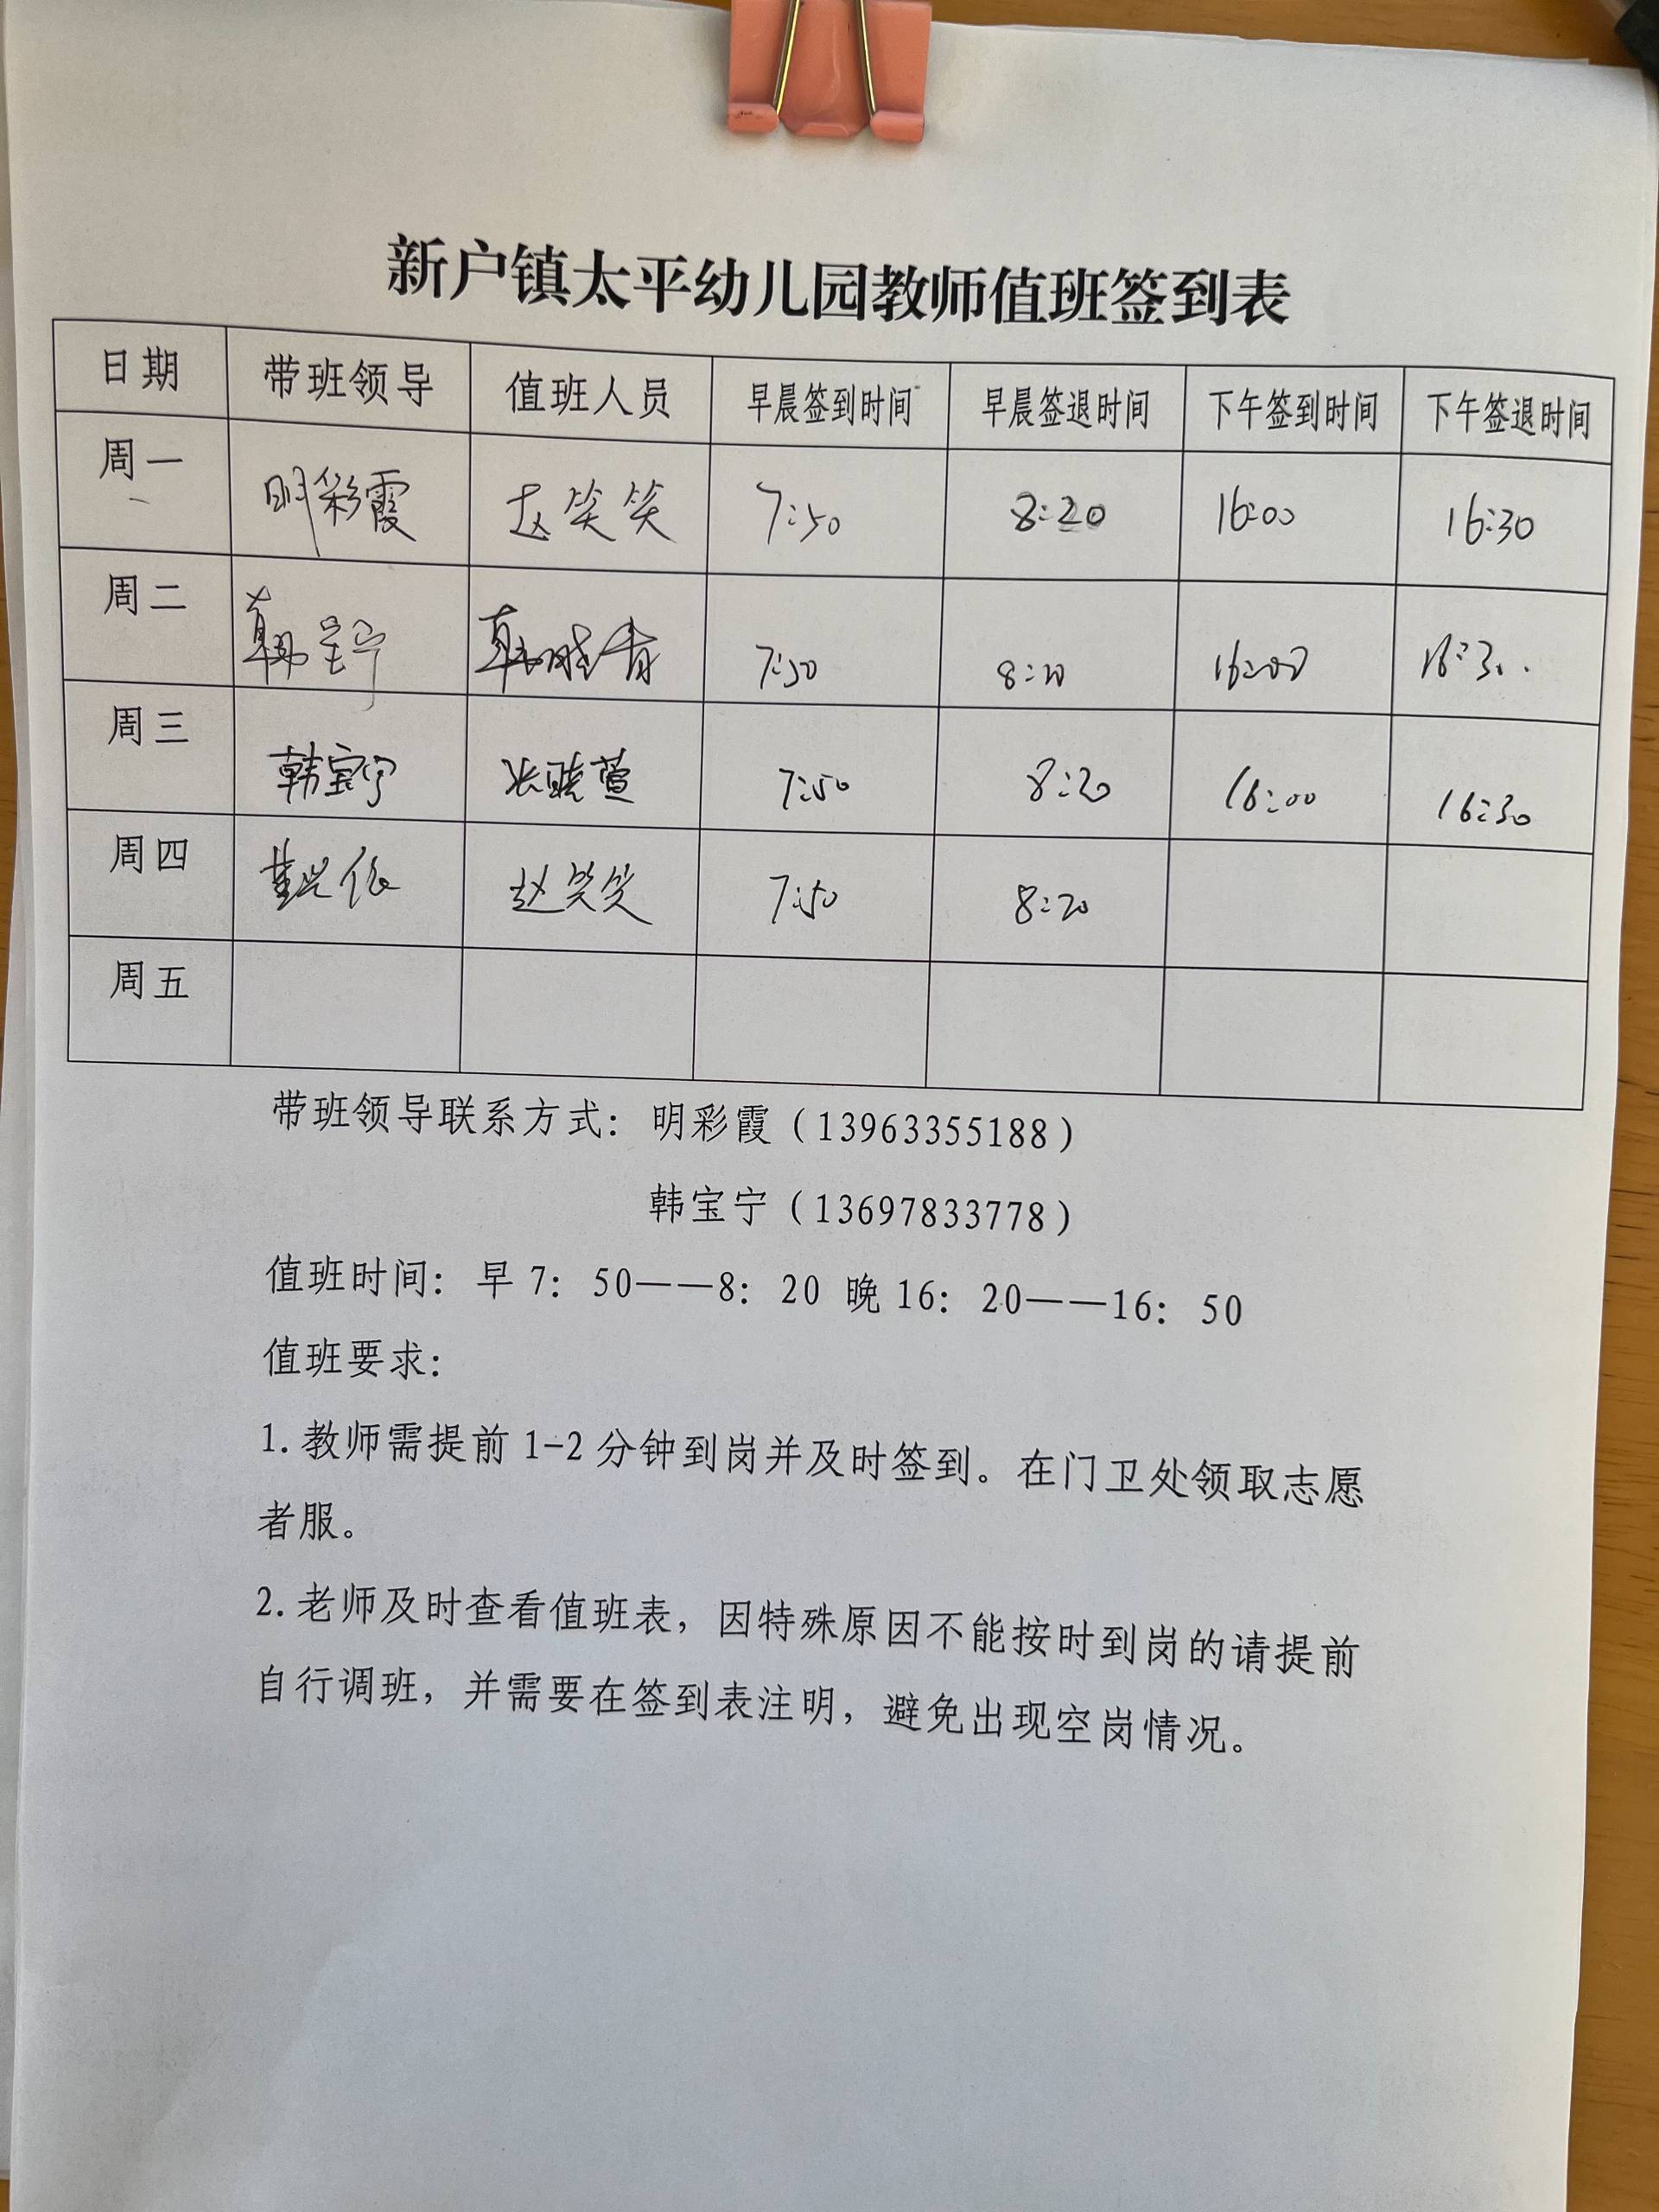 新户镇太平幼儿园教师值班签到表
日期 带班领导 值班人员 早晨签到时间 早晨签退时间 下午签到时间 下午签退时间
周一 明彩霞 赵笑笑 7:50 8:20 16:00 16:30
周二 韩宝宁 7:50 8:20 16:00 16:30.
周三 韩宝宁 张晓萱 7:50 8:20 16:00 16:30
周四 赵笑笑 7:50 8:20
周五
带班领导联系方式：明彩霞（13963355188）
韩宝宁（13697833778）
值班时间：早7：50——8：20 晚16：20——16：50
值班要求：
1.教师需提前1-2分钟到岗并及时签到。在门卫处领取志愿
者服。
2.老师及时查看值班表，因特殊原因不能按时到岗的请提前
自行调班，并需要在签到表注明，避免出现空岗情况。